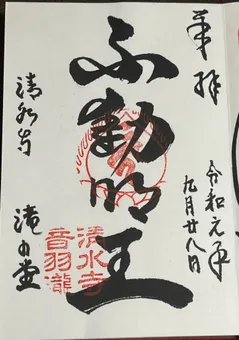 奉拝
令和元年
九月廿八日
不動明王
清水寺
音羽瀧
清水寺
滝の堂